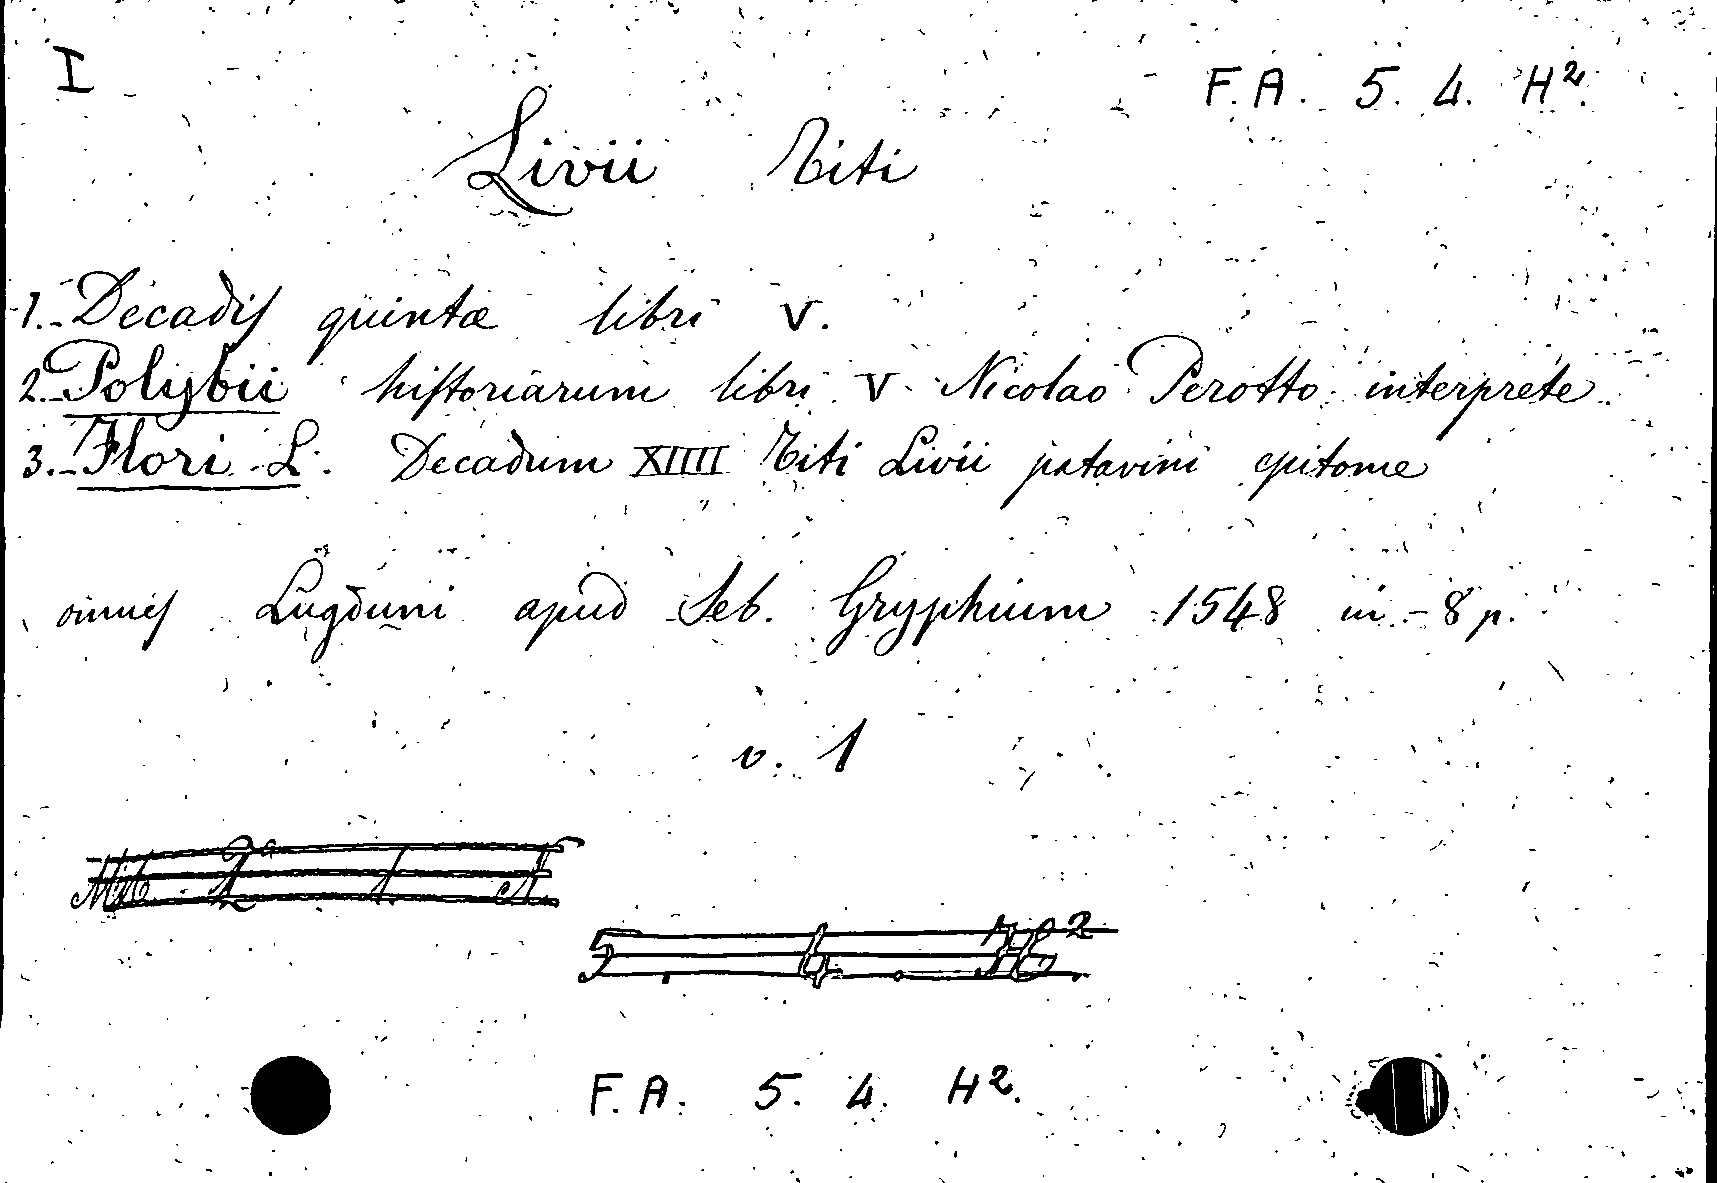 I
F. A. 5. 4. H².
Livii Titi
1.- Decadis quintæ libri V.
2.- Polybii historiarum libri V Nicolao Perotto interprete
3.- Flori L. Decadum XIIII Titi Livii patavini epitome
omnes Lugduni apud Seb. Gryphium 1548 in-8 p.
v. 1
5. 4. H²
F. A. 5. 4. H².